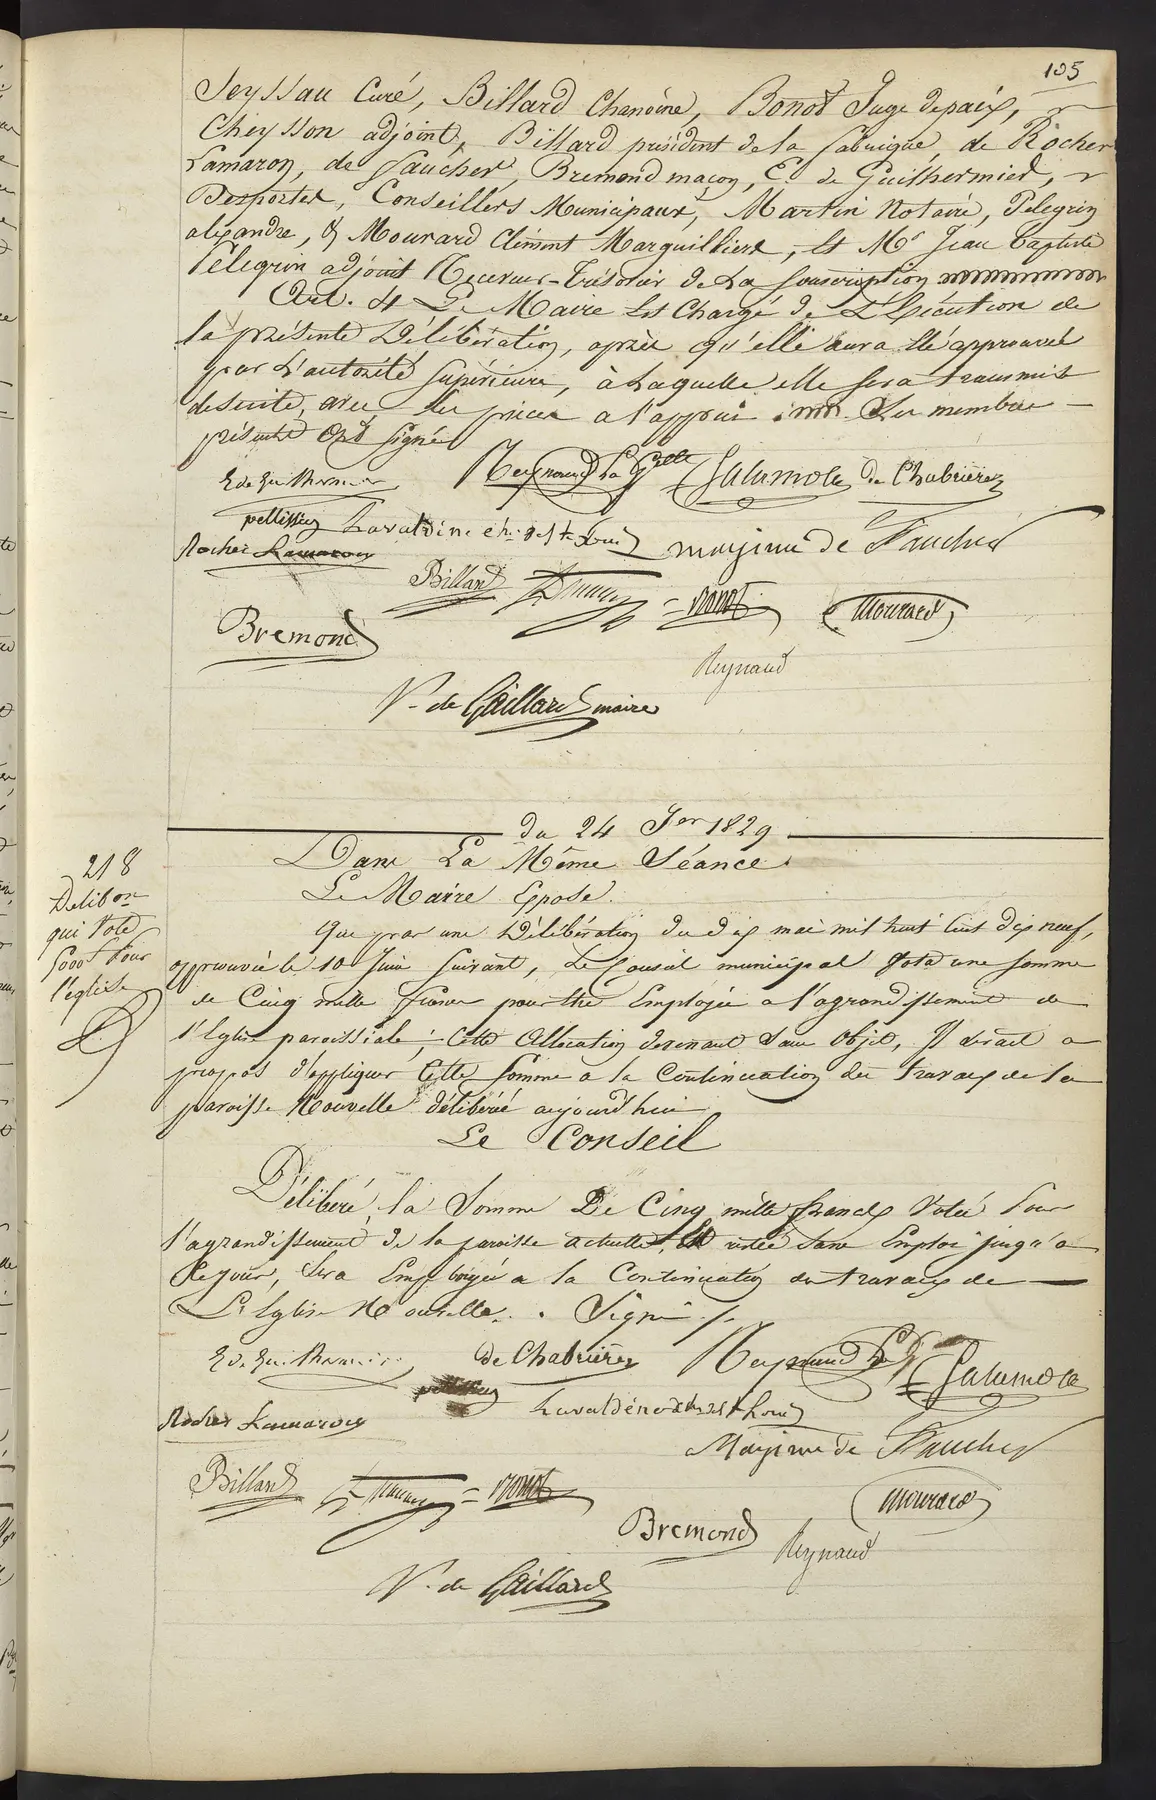 105
Seyssau Curé, Billard Chanoine, Bonot Juge de paix,
Cheysson adjoint, Billard président de la fabrique, de Rocher
Lamaron, de Faucher, Bremond maçon, E. de Guilhermier,
Desportes, Conseillers Municipaux, Martin Notaire, Pelegrin
alexandre, & Mourard Clément Marguilliers, et Mr Jean Baptiste
Pélegrin adjoint Receveur-Trésorier de La souscription
Art. 4 Le Maire Est Chargé de L'Exécution de
la présente Délibération, après qu'elle aura été approuvée
par L'autorité supérieure, à Laquelle elle sera transmise
desuite, avec les pièces a l'appui. Les membres
présents Ont signé
E de Guilhermier
Reynaud La Gtte
Salamole
de Chabrières
pellissier
Lavaldène ch. de St Louis
maxime de Faucher
Rocher Lamaron
Billard
Bonot
Mourard
Bremond
Reynaud
V. de Gaillard maire
du 24 Jer 1829
218
Delibon
qui Vote
5000f Pour
l'église
Dans La Même Séance
Le Maire Expose
Que par une Délibération du dix mai mil huit cent dix neuf,
approuvée le 10 Juin suivant, Le Conseil municipal Vota une somme
de Cinq mille francs pour être Employée a l'agrandissement de
l'Eglise paroissiale; Cette Allocation devenant sans Objet, Il serait a
propos d'appliquer Cette somme a la Continuation des travaux de la
paroisse Nouvelle délibérée aujourd'hui
Le Conseil
Délibéré, la Somme De Cinq mille francs Votée Pour
l'agrandissement de la paroisse actuelle, Et restée sans Emploi jusqu'a
Ce jour, Sera Employée a la Continuation des travaux de
L'Eglise Nouvelle. Signé
E de Guilhermier
de Chabrières
Reynaud La
Salamole
pellissier
Lavaldène ch. de St Louis
Rocher Lamaron
Maxime de Faucher
Billard
Bonot
Mourard
Bremond
Reynaud
V. de Gaillard